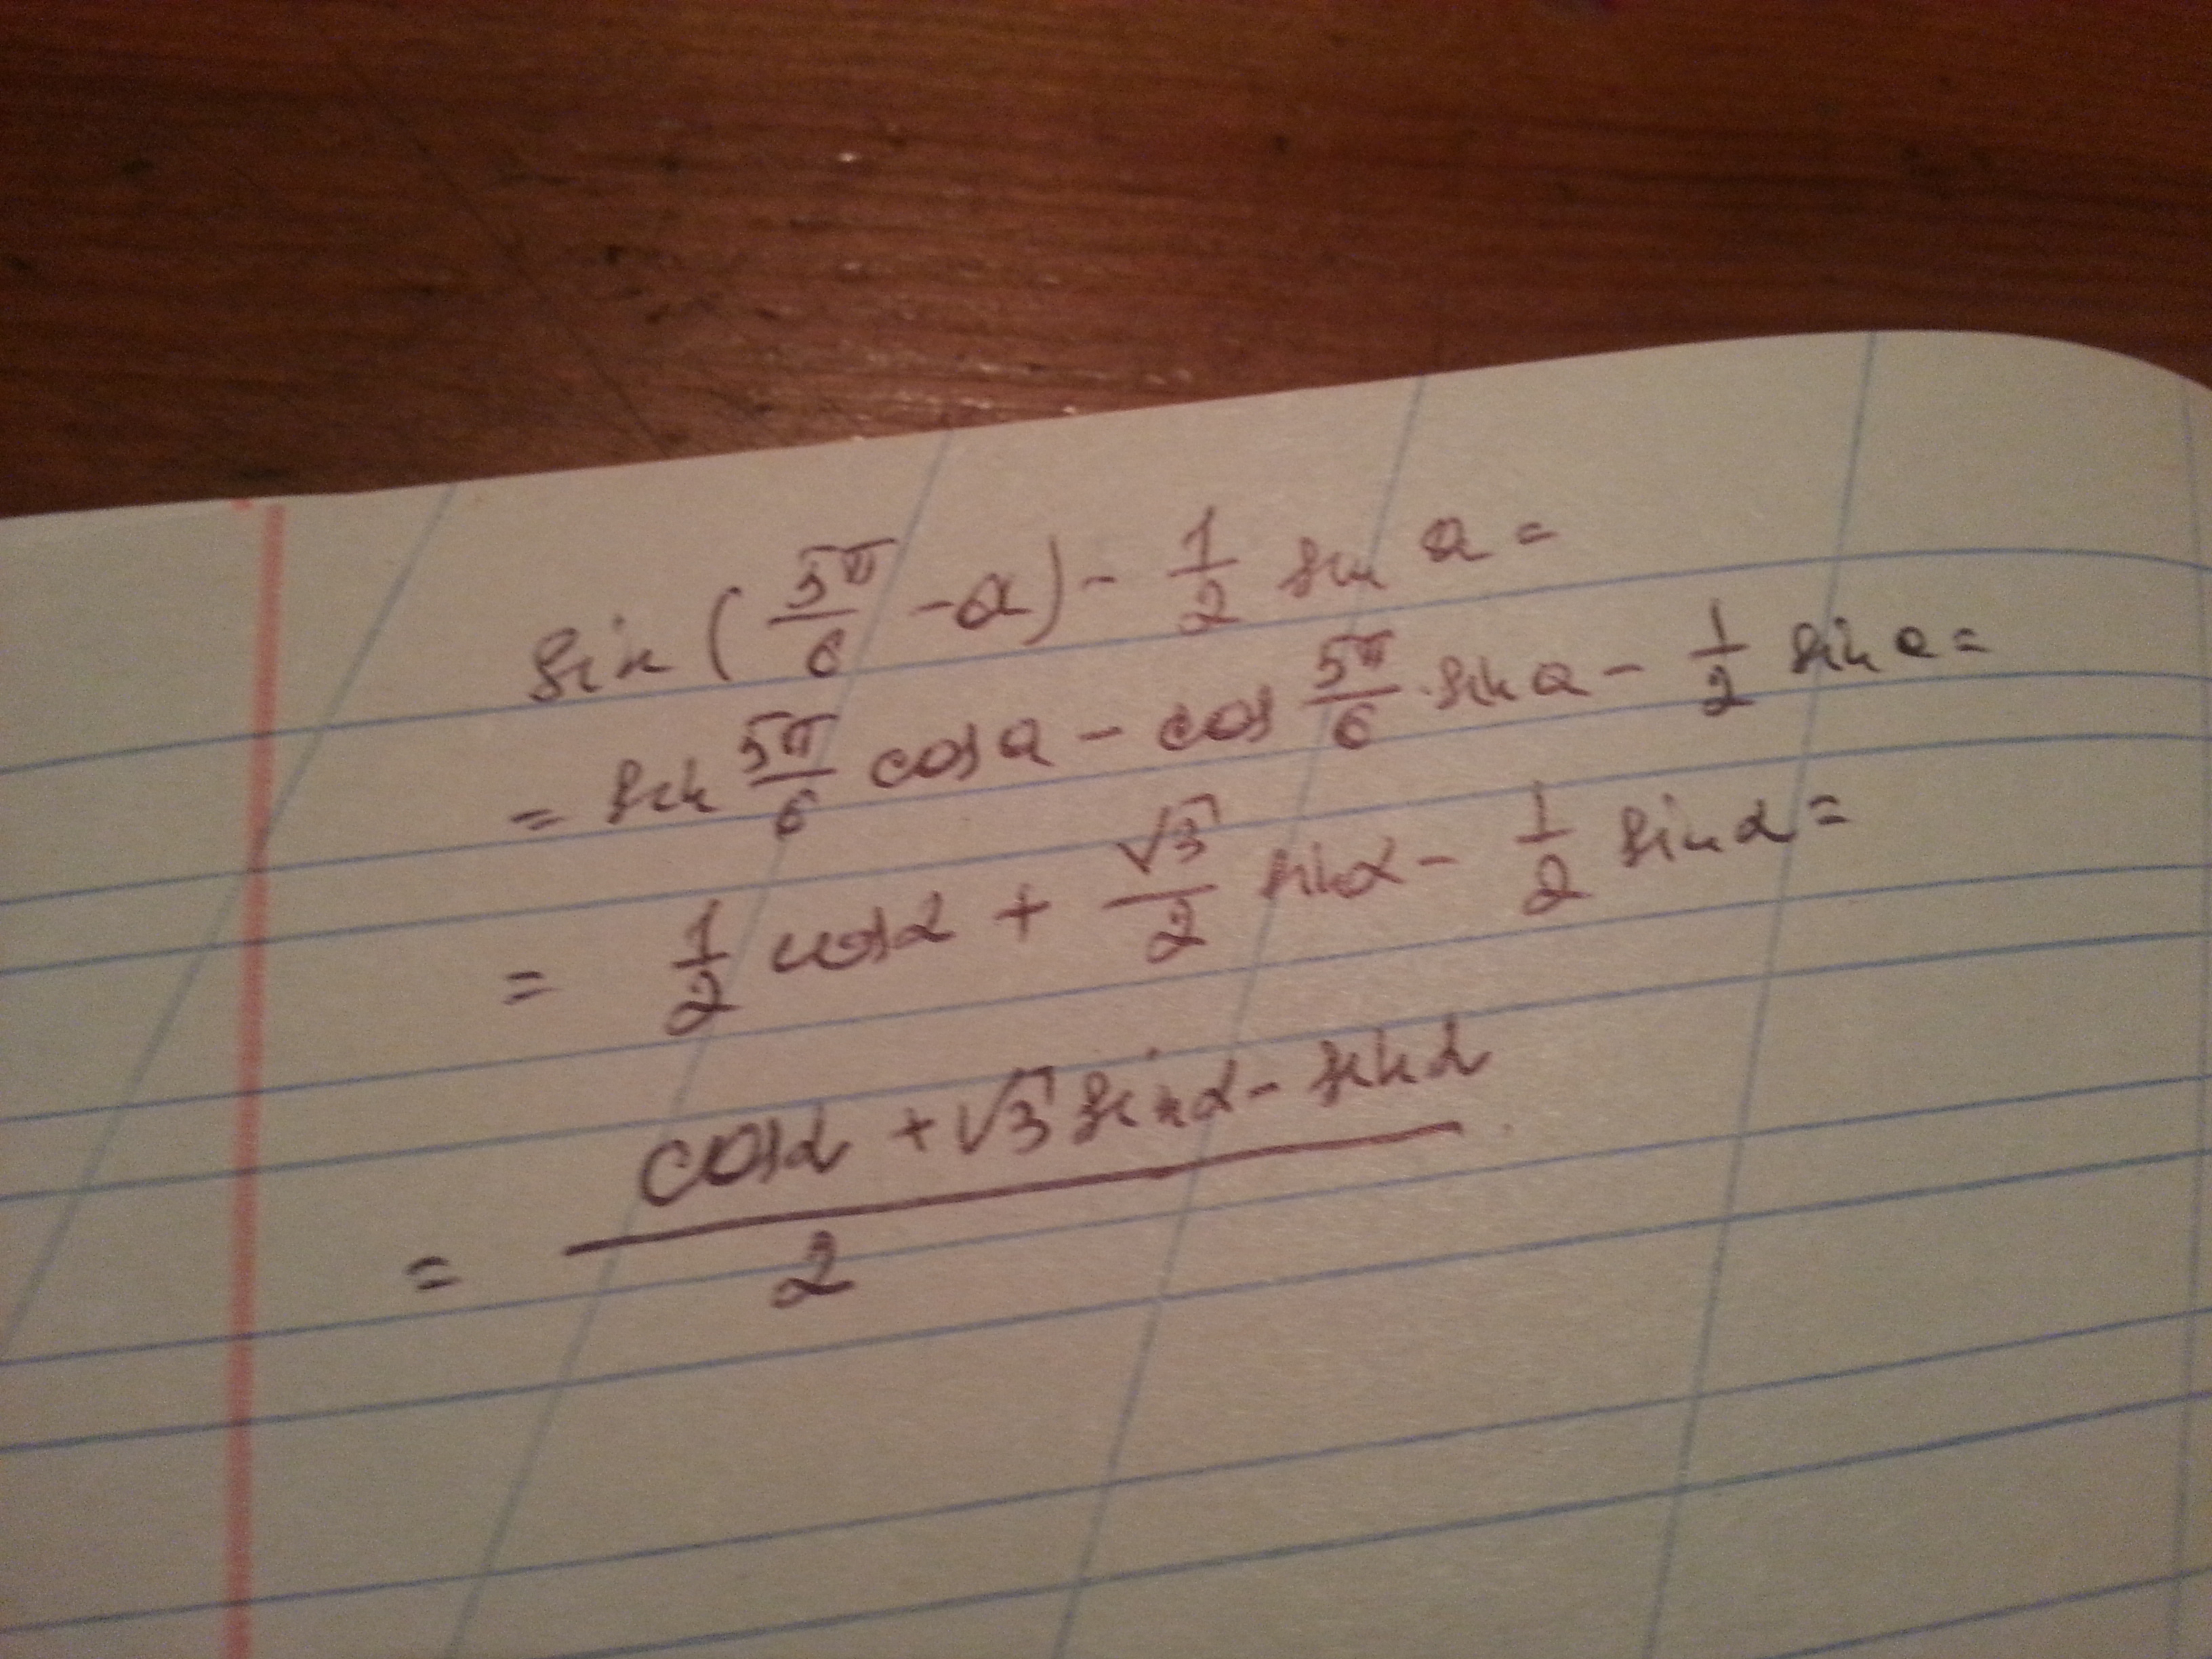 sin (5π/6 - α) - 1/2 sin α =
= sin 5π/6 cos α - cos 5π/6 · sin α - 1/2 sin α =
= 1/2 cos α + √3/2 sin α - 1/2 sin α =
= (cos α + √3 sin α - sin α)/2